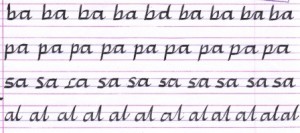 ba ba ba ba bd ba ba ba ba ba
pa pa pa pa pa pa pa pa pa pa
sa sa sa sa sa sa sa sa sa sa
al al al al al al al al al alal